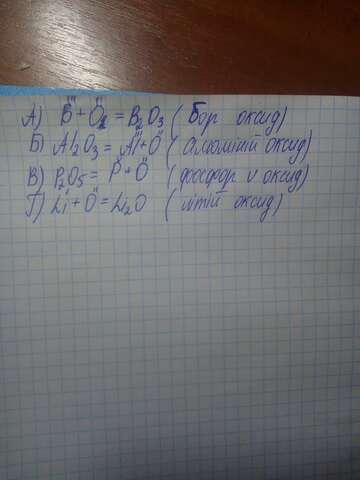 А) B + O2 = B2O3 (Бор оксид)
Б) Al2O3 = Al + O (алюміній оксид)
В) P2O5 = P + O (фосфор v оксид)
Г) Li + O = Li2O (літій оксид)